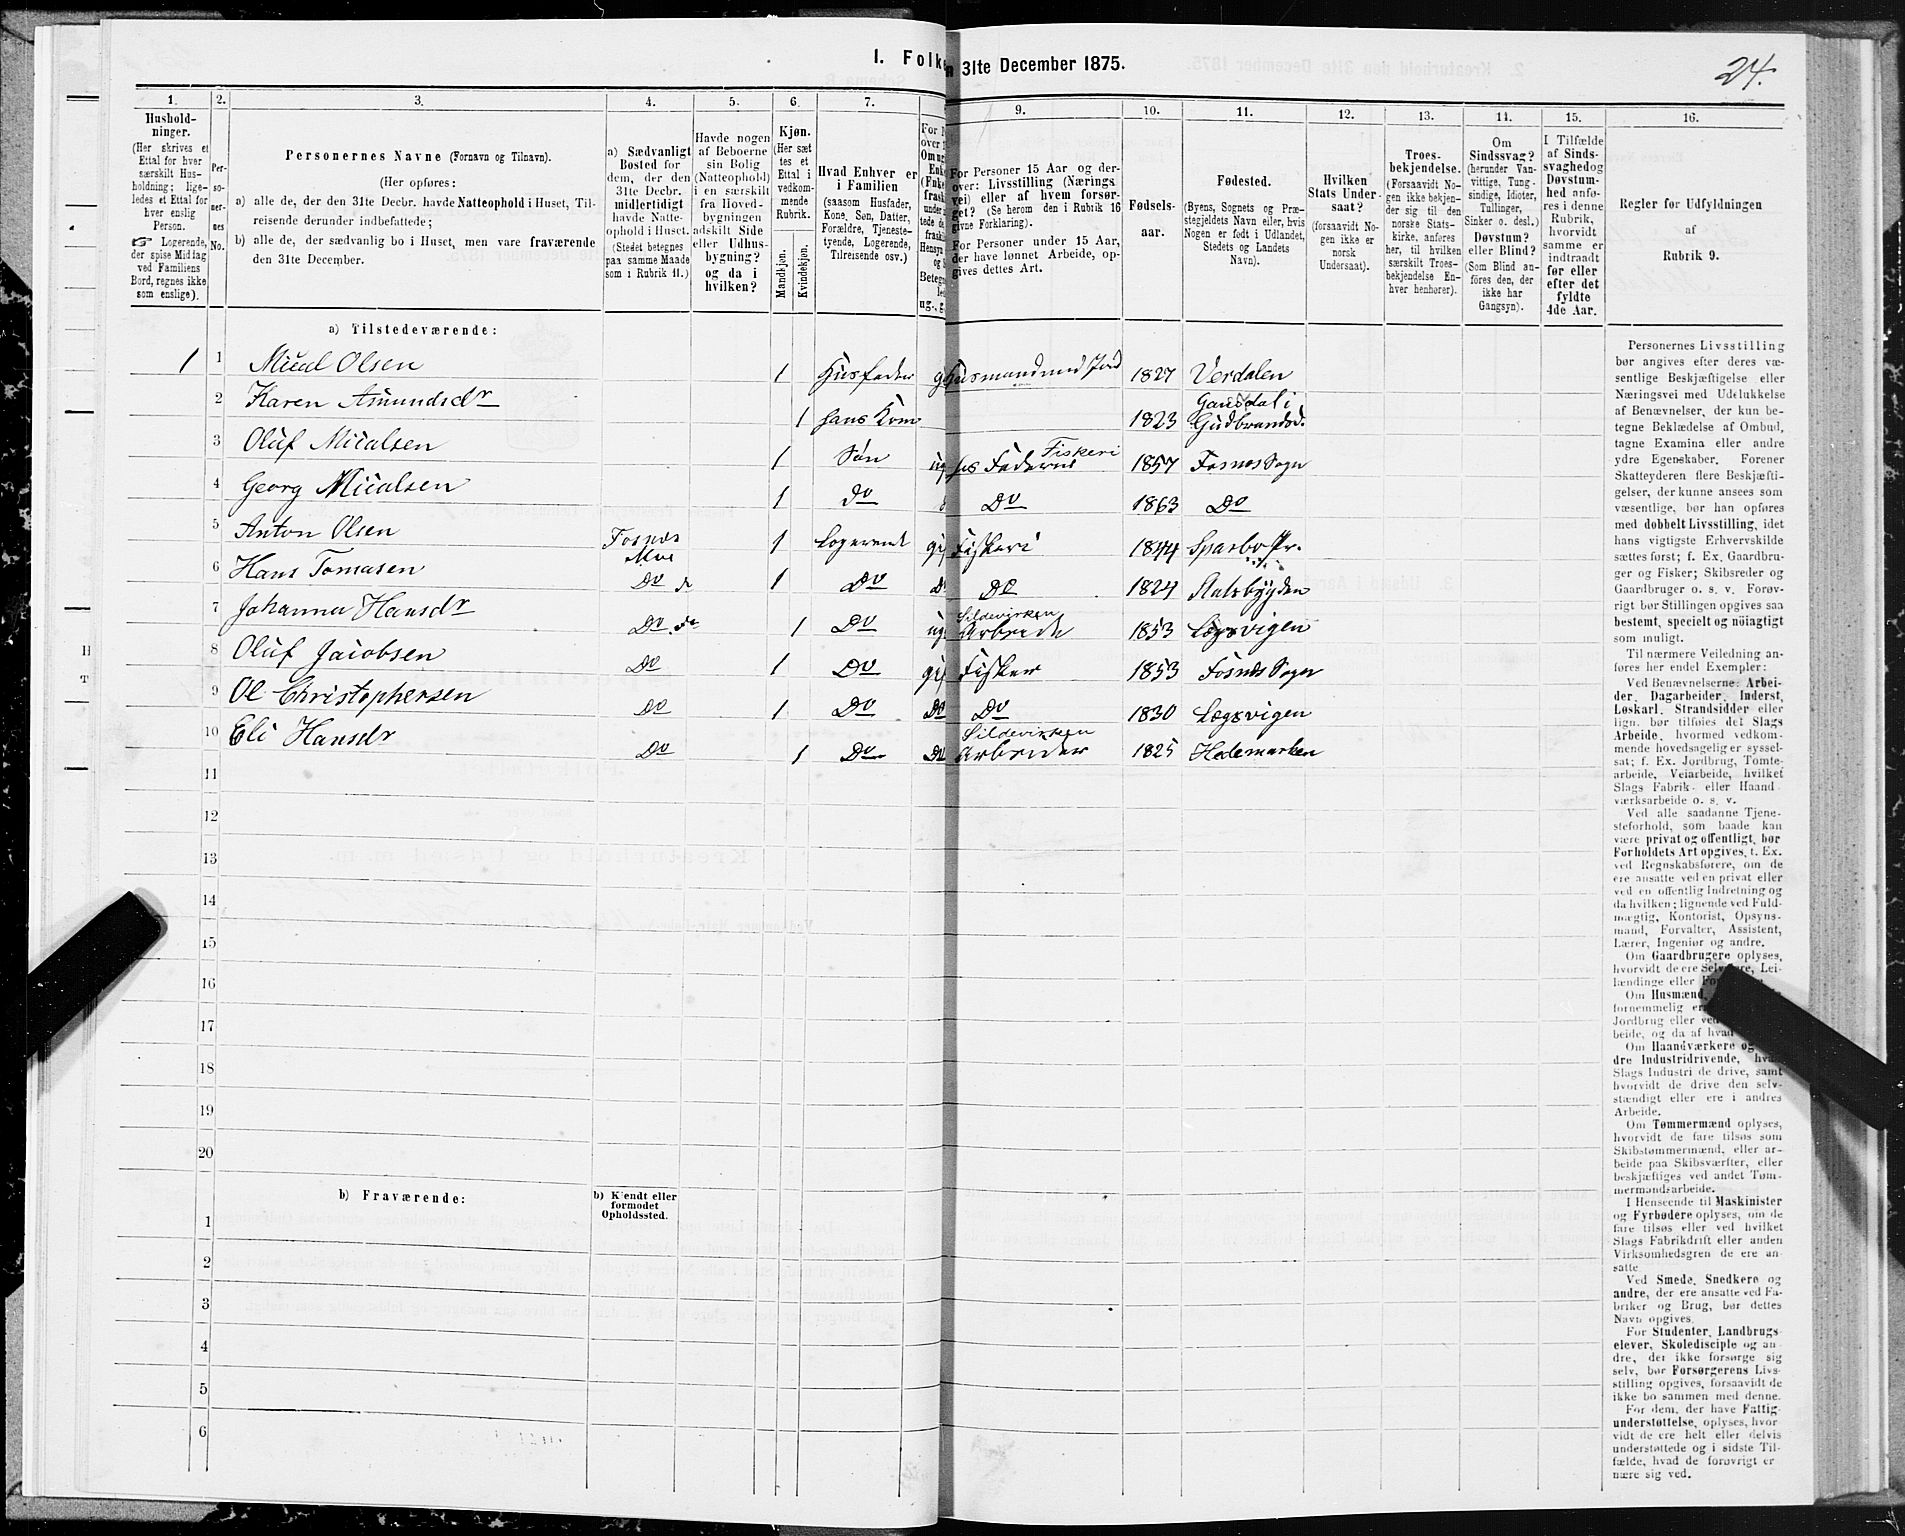 I. Folke
n 31te December 1875.
24.
1.
2.
3.
4.
5.
6.
7.
9.
10.
11.
12.
13.
14.
15.
16.
Hushold-
ninger.
(Her skrives et
Ettal for hver
særskilt Hus-
holdning; lige-
ledes et Ettal for
hver enslig
Person.
☞ Logerende,
der spise Middag
ved Familiens
Bord, regnes ikke
som enslige).
Per-
so-
ner-
nes
No.
Personernes Navne (Fornavn og Tilnavn).
(Her opføres:
a) alle de, der den 31te Decbr. havde Natteophold i Huset, Til-
reisende derunder indbefattede;
b) alle de, der sædvanlig bo i Huset, men vare fraværende
den 31te December.
a) Sædvanligt
Bosted for
dem, der den
31te Decbr.
midlertidigt
havde Natte-
ophold i Huset.
(Stedet betegnes
paa samme Maade
som i Rubrik 11.)
Havde nogen
af Beboerne
sin Bolig
(Natteophold)
i en særskilt
fra Hoved-
bygningen
adskilt Side
eller Udhus-
bygning?
og da i
hvilken?
Kjøn.
(Her sæt
tes et
Ettal i
vedkom-
mende
Rubrik.
Mandkjøn.
Kvindekjøn.
Hvad Enhver er
i Familien
(saasom Husfader,
Kone, Søn, Datter,
Forældre, Tjeneste-
tyende, Logerende,
Tilreisende osv.)
For Personer 15 Aar og der-
over: Livsstilling (Nærings
vei) eller af hvem forsør-
get? (Se herom den i Rubrik 16
givne Forklaring).
For Personer under 15 Aar,
der have lønnet Arbeide, op-
gives dettes Art.
Fødsels-
aar.
Fødested.
(Byens, Sognets og Præ-
stegjeldets Navn eller, hvis
Nogen er født i Udlandet,
Stedets og Landets
Navn).
Hvilken
Stats Under-
saat?
(forsaavidt No-
gen ikke er
norsk
Undersaat).
Troes-
bekjendelse.
(Forsaavidt No-
gen ikke bekjen-
der sig til den
norske Stats-
kirke, anføres
her, til hvilken
særskilt Troes-
bekjendelse En-
hver henhører).
Om
Sindssvag?
(herunder Van-
vittige, Tung-
sindige, Idioter,
Tullinger,
Sinker o. desl.)
Døvstum?
eller Blind?
(Som Blind an-
føres den, der
ikke har
Gangsyn).
I Tilfælde
af Sinds-
svaghed og
Døvstum-
hed anfø-
res i denne
Rubrik,
hvorvidt
samme er
indtraadt
før eller
efter det
fyldte
4de Aar.
Regler for Udfyldningen
af
Rubrik 9.
a) Tilstedeværende:
1 1 Mical Olsen 1 Husfader g Husmand med Jord 1827 Verdalen
2 Karen Asmundsdr 1 hans Kone 1823 Gausdal i Gudbrandsd.
3 Oluf Micalsen 1 Søn ug hs Faderens Fiskeri 1857 Fosnes Sogn
4 Georg Micalsen 1 do Do 1863 Do
5 Anton Olsen Fosnes 1 Logerende gif Fiskeri 1844 Sparbo Pr.
6 Hans Tomasen Do 1 Do D Do 1824 Stadsbygden
7 Johanna Hansdr Do 1 Do ug Sildevirken Arbeide 1853 Lexvigen
8 Oluf Jacobsen Do 1 Do gif Fisker 1853 Fosnes Sogn
9 Ol Christophersen Do 1 Do Do Do 1830 Lexvigen
10 Eli Hansdr Do 1 Do Do Sildevirken Arbeider 1825 Hedemarken
11
12
13
14
15
16
17
18
19
20
b) Fraværende:
b) Kjendt eller
formodet
Opholdssted.
1
2
3
4
5
6
Personernes Livsstilling
bør angives efter deres væ-
sentlige Beskjæftigelse eller
Næringsvei med Udelukkelse
af Benævnelser, der kun be-
tegne Beklædelse af Ombud,
tagne Examina eller andre
ydre Egenskaber. Forener
Skatteyderen flere Beskjæfti-
gelser, der kunne ansees som
væsentlige, bør han opføres
med dobbelt Livsstilling, idet
hans vigtigste Erhvervskilde
sættes først; f. Ex. Gaardbru-
ger og Fisker; Skibsreder og
Gaardbruger o. s. v. Forøv-
rigt bør Stillingen opgives saa
bestemt, specielt og nøiagtigt
som muligt.
Til nærmere Veiledning an-
føres her endel Exempler:
Ved Benævnelserne: Arbei-
der, Dagarbeider, Inderst,
Løskarl, Strandsidder eller
lign. bør tilføies det Slags
Arbeide, hvormed vedkom-
mende hovedsagelig er syssel-
sat; f. Ex. Jordbrug, Tomte-
arbeide, Veiarbeide, hvilket
Slags Fabrik- eller Haand
værksarbeide o. s. v.
Ved alle saadanne Tjene-
steforhold, som baade kan
være privat og offentligt, bør
Forholdets Art opgives, t. Ex.
ved Regnskabsførere, om de
ere ansatte ved en privat eller
ved en offentlig Indretning og
da hvilken; lignende ved Fuld-
mægtig, Kontorist, Opsyns-
mand, Forvalter, Assistent,
Lærer, Ingeniør og andre.
Om Gaardbrugere oplyses,
hvorvidt de ere Selveiere, Lei-
lændinge eller
Om Husmænd,
fornemmelig
Jordbrug eller
beide, og da af hvad
Om Haandværkere og
dre Industridrivende,
Slags Industri de drive, samt
hvorvidt de drive den selv-
stændigt eller ere i andres
Arbeide.
Om Tømmermænd oplyses,
hvorvidt de fare tilsøs som
Skibstømmermænd, eller ar-
beide paa Skibsværfter, eller
beskjæftiges ved andet Tøm-
mermandsarbeide.
I Henseende til Maskinister
og Fyrbødere oplyses, om de
fare tilsøs eller ved hvilket
Slags Fabrikdrift eller anden
Virksomhedsgren de ere an-
satte
Ved Smede, Snedkere og
andre, der ere ansatte ved Fa-
briker og Brug, bør dettes
Navn opgives.
For Studenter, Landbrugs-
elever, Skoledisciple og an-
dre, der ikke forsørge sig
selv, bør Forsørgerens Livs-
stilling opgives, forsaavidt de
ikke bo sammen med denne.
For dem, der have Fattig-
understøttelse, oplyses, hvor-
vidt de ere helt eller delvis
understøttede og i sidste Til-
fælde, hvad de forøvrigt er
nære sig ved.